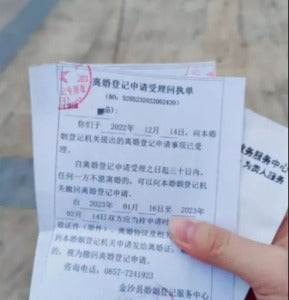 离婚登记申请受理回执单
(NO. 52052320022002430)
你们于 2022年 12月 14日,向本婚
姻登记机关提出的离婚登记申请事项已受
理。
自离婚登记申请受理之日起三十日内,
任何一方不愿离婚的,可以向本婚姻登记机
关撤回离婚登记申请。
自 2023年 01月 16日至 2023年
02月 14日双方应当持申请时
到本婚姻登记机关申请发给离婚证,
的,视为撤回离婚登记申请。
咨询电话:0857-7241923
金沙县婚姻登记服务中心
服务中心
为贵人服务